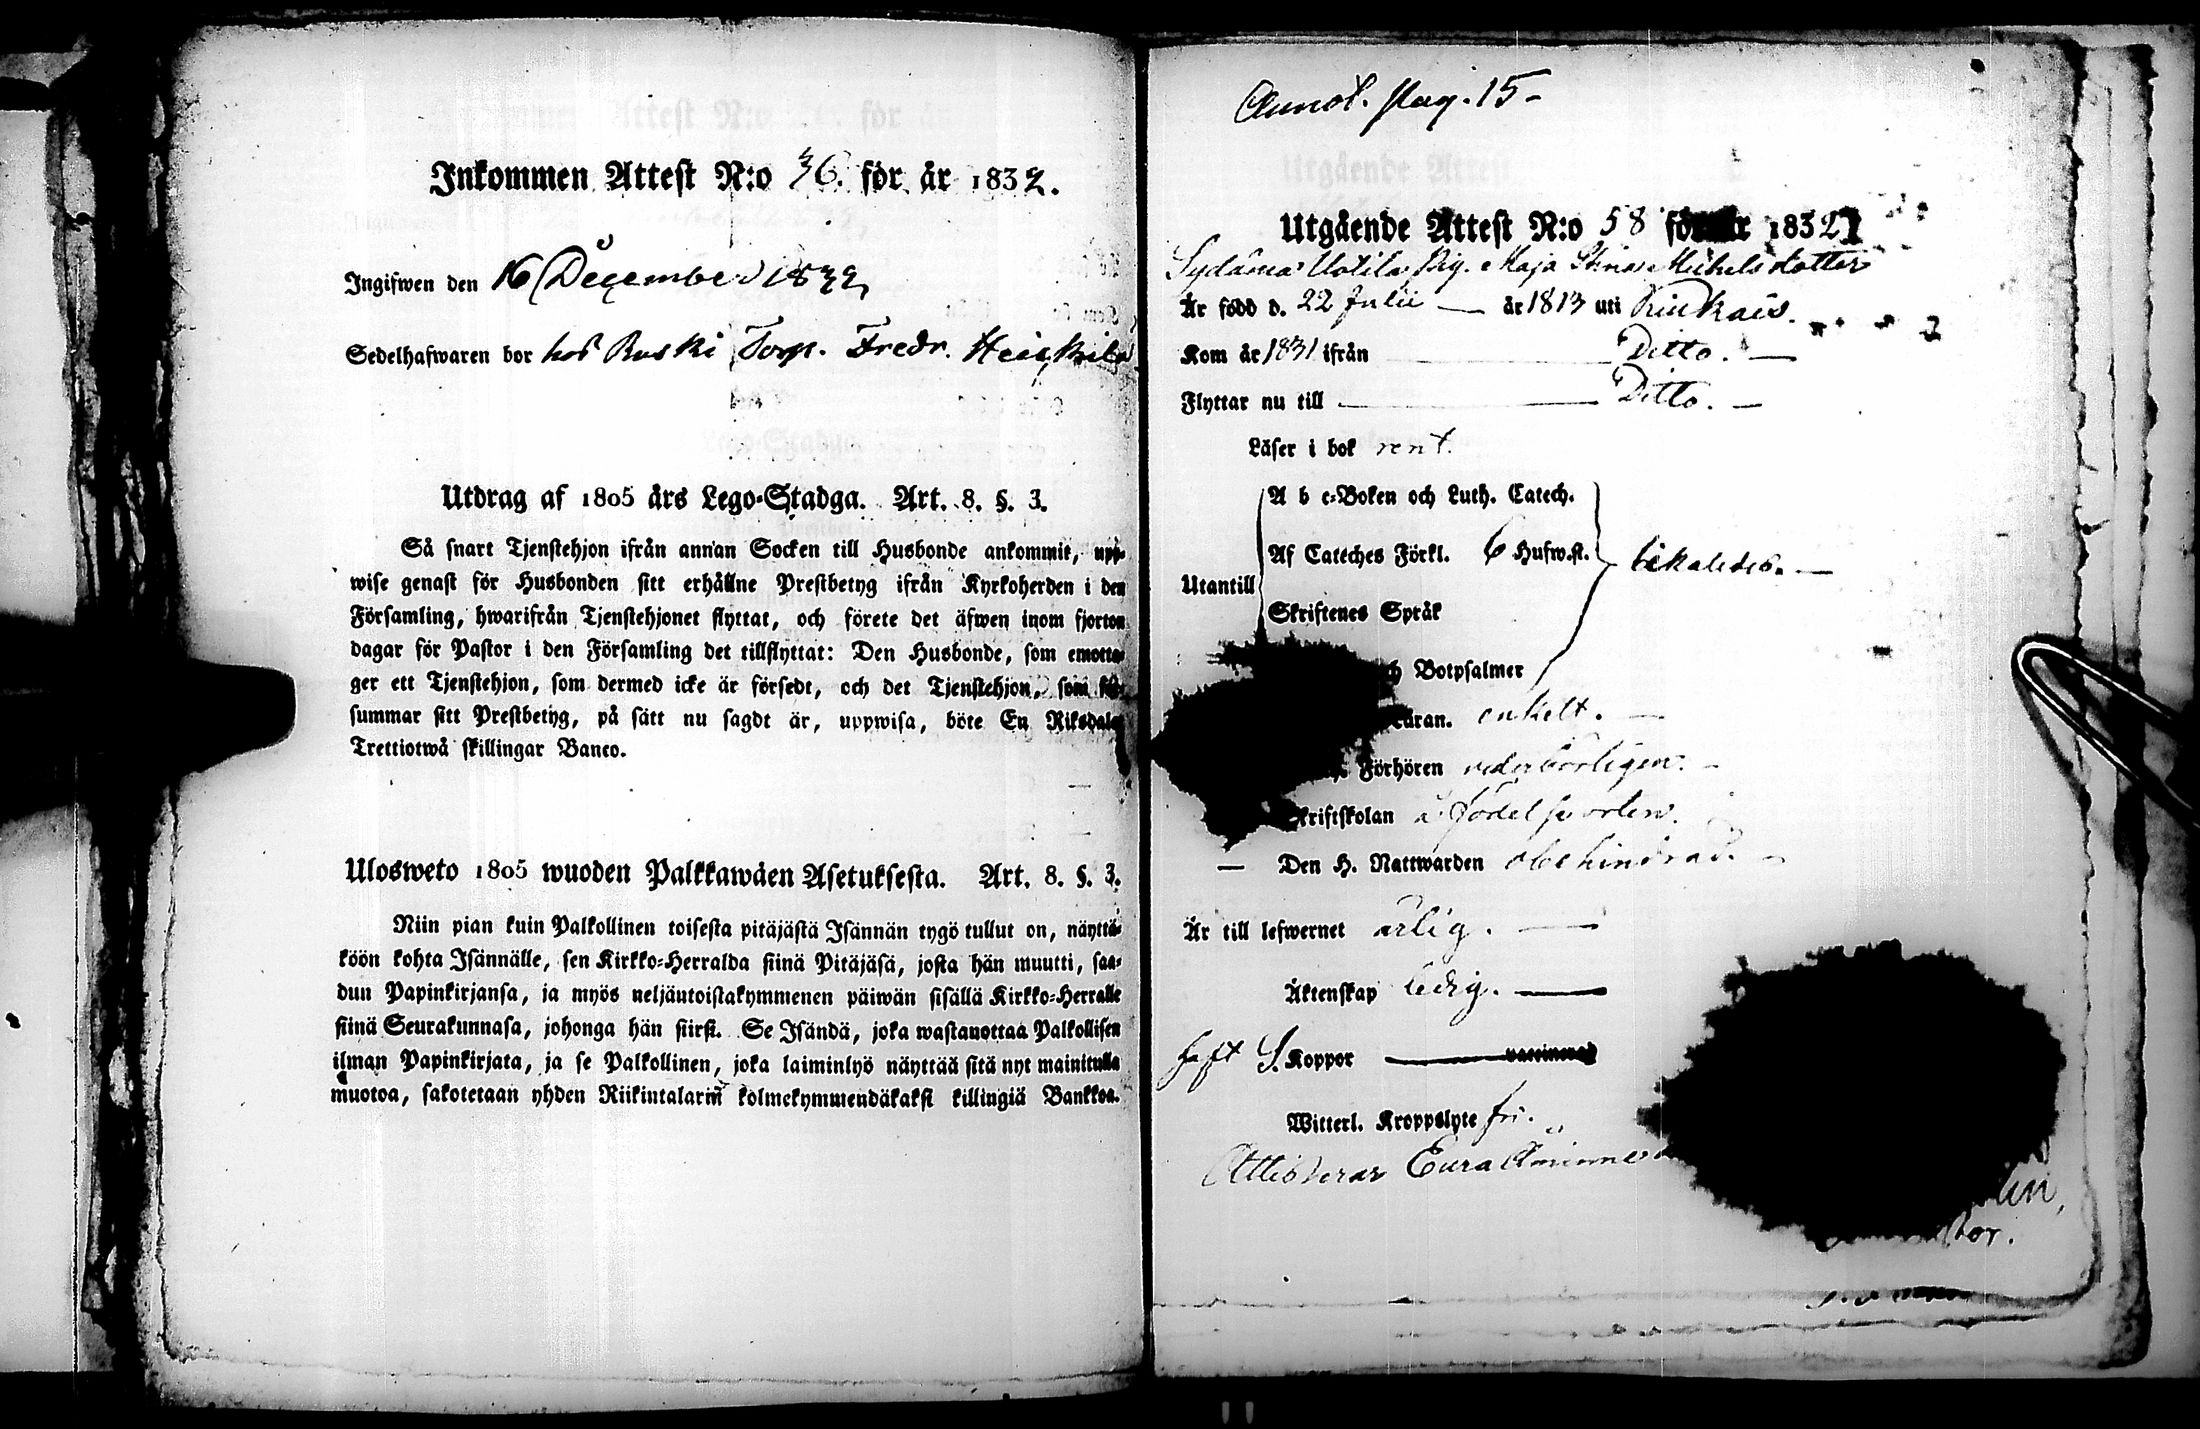 Inkommen Attest N:o 36. för år 1832.
Ingifwen den 16 December 1832
Sedelhafwaren bor hos Ruski Torp. Fredr. Heickilä
Utdrag af 1805 års Lego-Stadga. Art. 8. §. 3.
Så snart Tjenstehjon ifrån annan Socken till Husbonde ankommit, upp-
wise genast för Husbonden sitt erhållne Prestbetyg ifrån Kyrkoherden i den
Församling, hwarifrån Tjenstehjonet flyttat, och förete det äfwen inom fjorton
dagar för Pastor i den Församling det tillflyttat: Den Husbonde, som emotta-
ger ett Tjenstehjon, som dermed icke är försedt, och det Tjenstehjon, som för-
summar sitt Prestbetyg, på sätt nu sagdt är, uppwisa, böte En Riksdaler
Trettiotwå skillingar Banco.
Ulosweto 1805 wuoden Palkkawäen Asetuksesta. Art. 8. §. 3.
Niin pian kuin Palkollinen toisesta pitäjästä Isännän tygö tullut on, näyttä-
köön kohta Isännälle, sen Kirkko-Herralda siinä Pitäjäsä, josta hän muutti, saa-
dun Papinkirjansa, ja myös neljäntoistakymmenen päiwän sisällä Kirkko-Herralle
siinä Seurakunnasa, johonga hän siirsi. Se Isändä, joka wastanottaa Palkollisen
ilman Papinkirjata, ja se Palkollinen, joka laiminlyö näyttää sitä nyt mainitulla
muotoa, sakotetaan yhden Riikintalarin kolmekymmendäkaksi killingiä Bankkoa.
Annot. pag. 15-
Utgående Attest N:o 58 för år 1832
Sydänmaa Uotila Pig. Maja Stina Michelsdotter
Är född d. 22 Julii — år 1813 uti Kiukais.
Kom år 1831 ifrån Ditto. —
Flyttar nu till Ditto. —
Läser i bok rent.
A b c-Boken och Luth. Catech.
Af Cateches Förkl. 6 Hufw.st. bikaledes. —
Utantill
Skriftenes Språk
ch Botpsalmer
läran. enkelt. —
Förhören vederbörligen. -
Skriftskolan å födelseorten.
— Den H. Nattwarden obehindrad. -
Är till lefwernet ärlig. —
Äktenskap ledig. —
haft S. Koppor — vaccinerad
Witterl. Kroppslyte fri.
Attesterar Eura Åminne
lin,
tor.